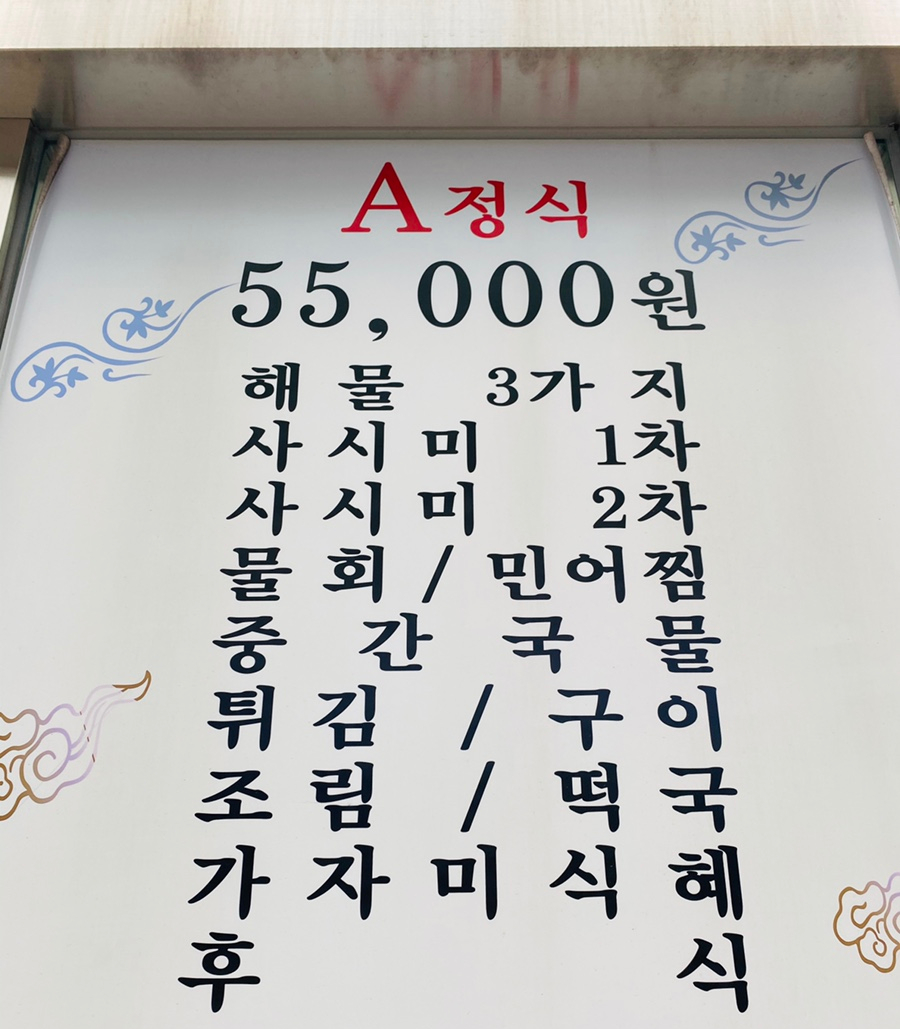 A정식
55,000원
해물 3가지
사시미 1차
사시미 2차
물회/민어찜
중간국물
튀김/구이
조림/떡국
가자미식혜
후식